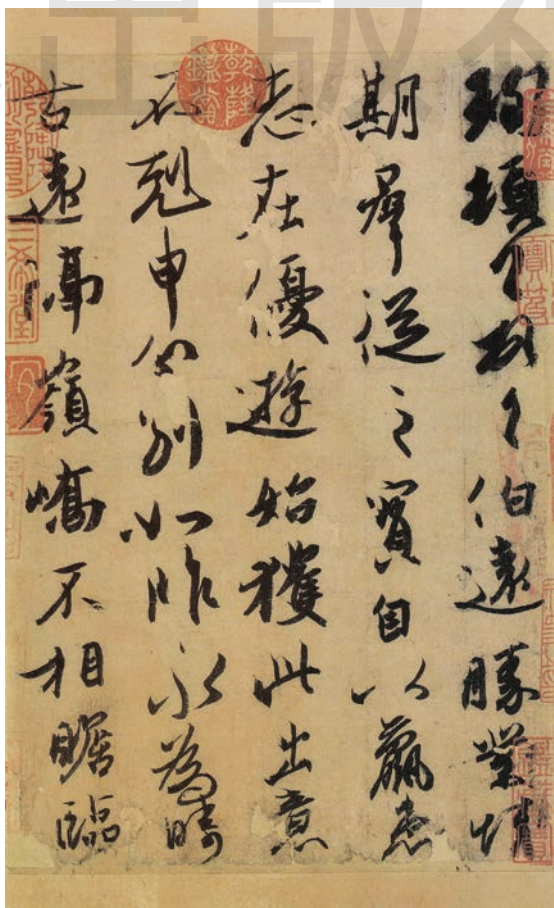 珣頓首〻〻伯遠勝業情
期羣從之寶自以羸患
志在優遊始獲此出意
不剋申分別如昨永為疇
古遠隔嶺嶠不相瞻臨
乾隆鑑賞
三希堂